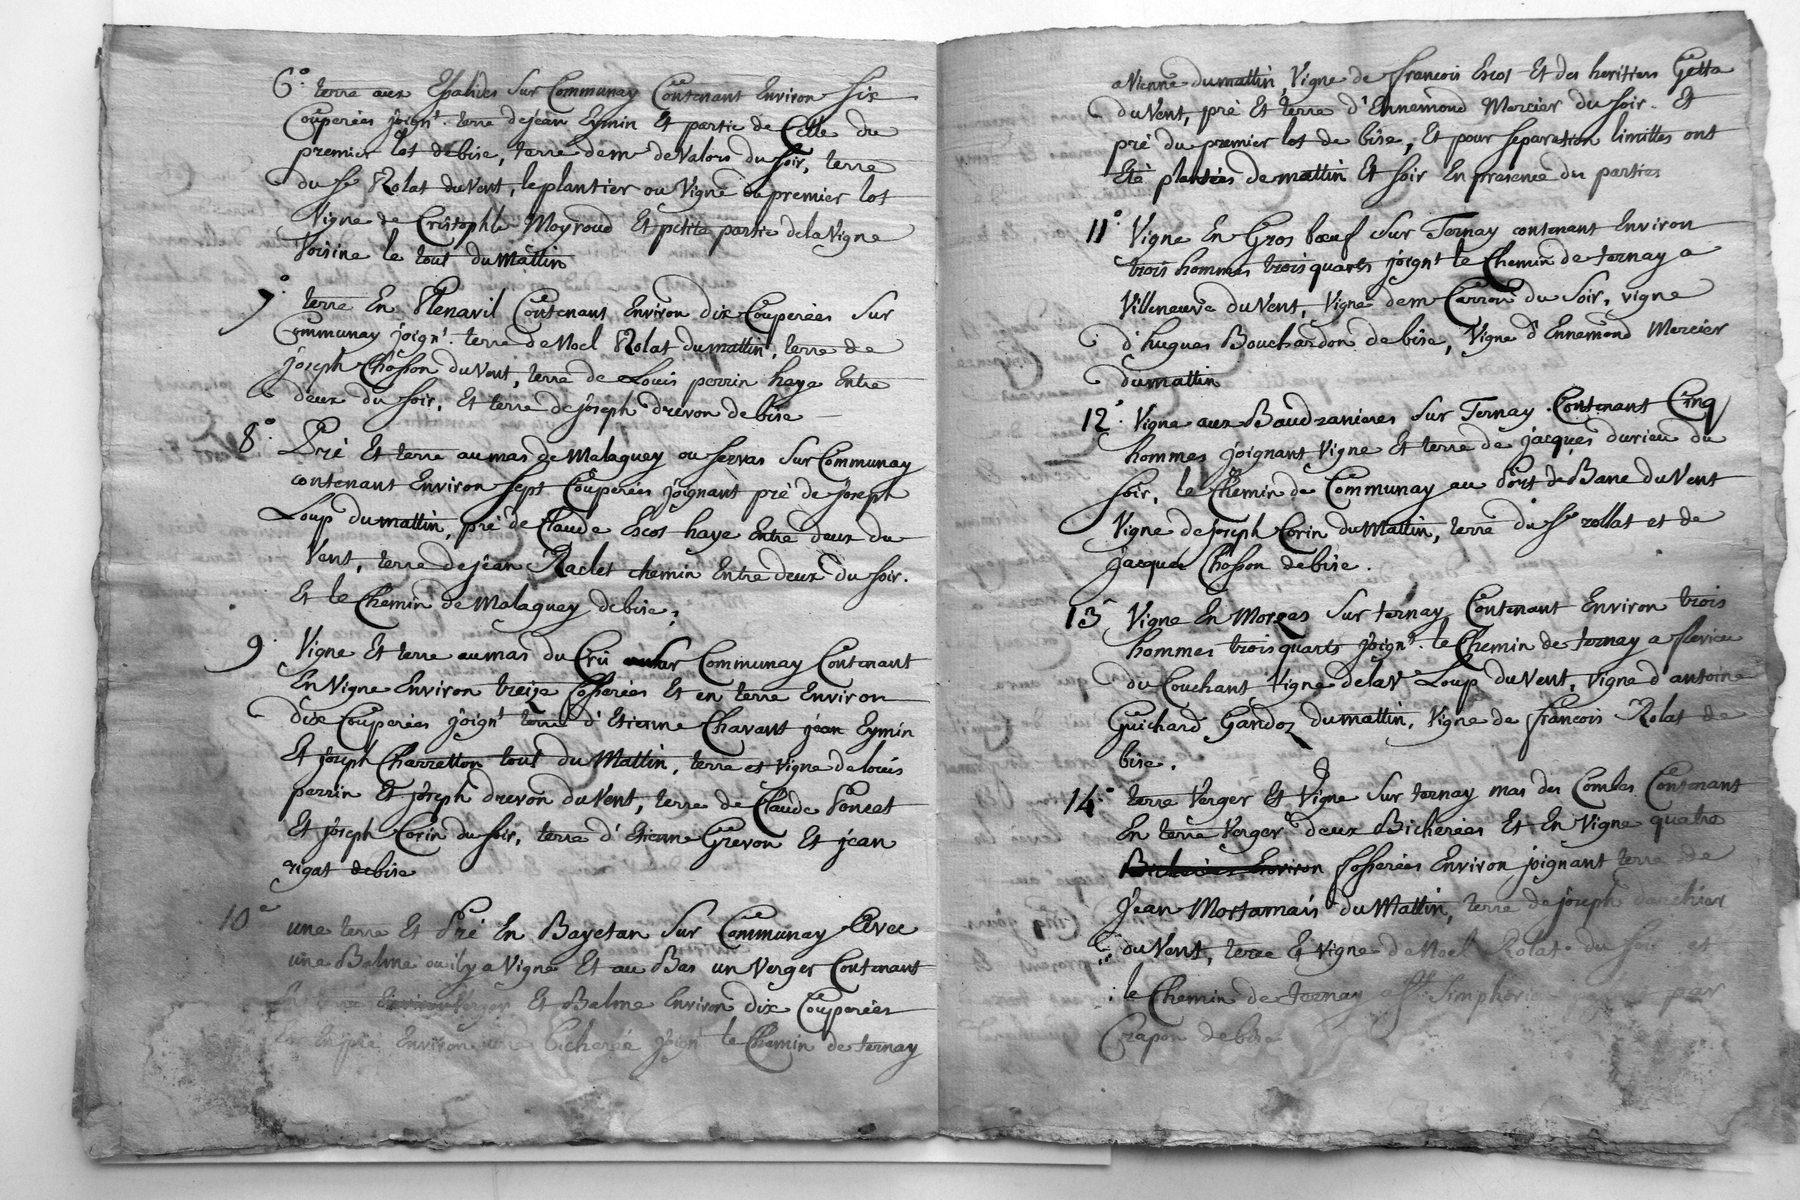 6° terre aux Esalives sur Communay Contenant Environ six
Couperées joign.t terre de jean Eymin Et partie de Celle du
premier lot de bise, terre de m.r de Valors du soir, terre
du s.r Rolat du Vent, le plantier ou Vigne du premier lot
Vigne de Cristophle Moyroud Et petite partie de la Vigne
Voisine le tout du Mattin
7° terre En Plenavil Contenant Environ dix Couperées sur
Communay joign.t terre de Noel Rolat du mattin, terre de
joseph Chosson du Vent, terre de Louis perrin haye Entre
deux du soir, Et terre de joseph drevon de bise
8° Pré Et terre au mas de Malaguey ou servas sur Communay
contenant Environ sept Couperées joignant pré de joseph
Loup du mattin, pré de Claude Escot haye Entre deux du
Vent, terre de jean Raclet chemin Entre deux du soir.
Et le Chemin de Malaguey de bise;
9° Vigne Et terre au mas du Crû sur Communay Contenant
En Vigne Environ treize fosserées Et en terre Environ
dix Couperées joign.t terre d'Etienne Chavant jean Eymin
Et joseph Charretton tout du Mattin, terre et vigne de louis
perrin Et joseph drevon du Vent, terre de Claude Poncet
Et joseph Corin du soir, terre d'Etienne Grevon Et jean
rigat de bise
10° une terre Et Pré En Bayetan sur Communay Avec
une Balme ou il y a Vigne Et au Bas un Verger Contenant
En terre Verger Et Balme Environ dix Couperées
Et En pré Environ une bicherée joign.t le Chemin de ternay
a Vienne du mattin, Vigne de francois Escot Et des heritiers Getta
du Vent, pré Et terre d'Ennemond Mercier du soir. Et
pré du premier lot de bise, Et pour separation limittes ont
Eté plantées de mattin Et soir En presence des parties
11° Vigne En Gros boeuf sur Ternay contenant Environ
trois hommes trois quarts joign.t le Chemin de ternay a
Villeneuve du Vent, Vigne de m.r Carron du soir, vigne
d'hugues Bouchardon de bise, Vigne d'Ennemond Mercier
du mattin
12° Vigne aux Baudranieres sur Ternay. Contenant Cinq
hommes joignant Vigne Et terre de jacques durieu du
soir, le Chemin de Communay au Port de Bane du Vent
Vigne de joseph Corin du Mattin, terre du s.r rollat et de
jacques Chosson de bise.
13° Vigne En Morges sur ternay Contenant Environ trois
hommes trois quarts joign.t le Chemin de ternay a flevieu
du Couchant Vigne de la V.e Loup du Vent, vigne d'antoine
Guichard Gandoz du mattin, Vigne de francois Rolat de
bise.
14° terre Verger Et Vigne sur ternay mas des Combes Contenant
En terre Verger deux Bicherées Et En Vigne quatre
Bicherées Environ fosserées Environ joignant terre de
Jean Mortamais du Mattin, terre de joseph darchier
du Vent, terre Et Vigne de Noel Rolat du soir et
le Chemin de Ternay a S.t Simphorien par
Crapon de bise